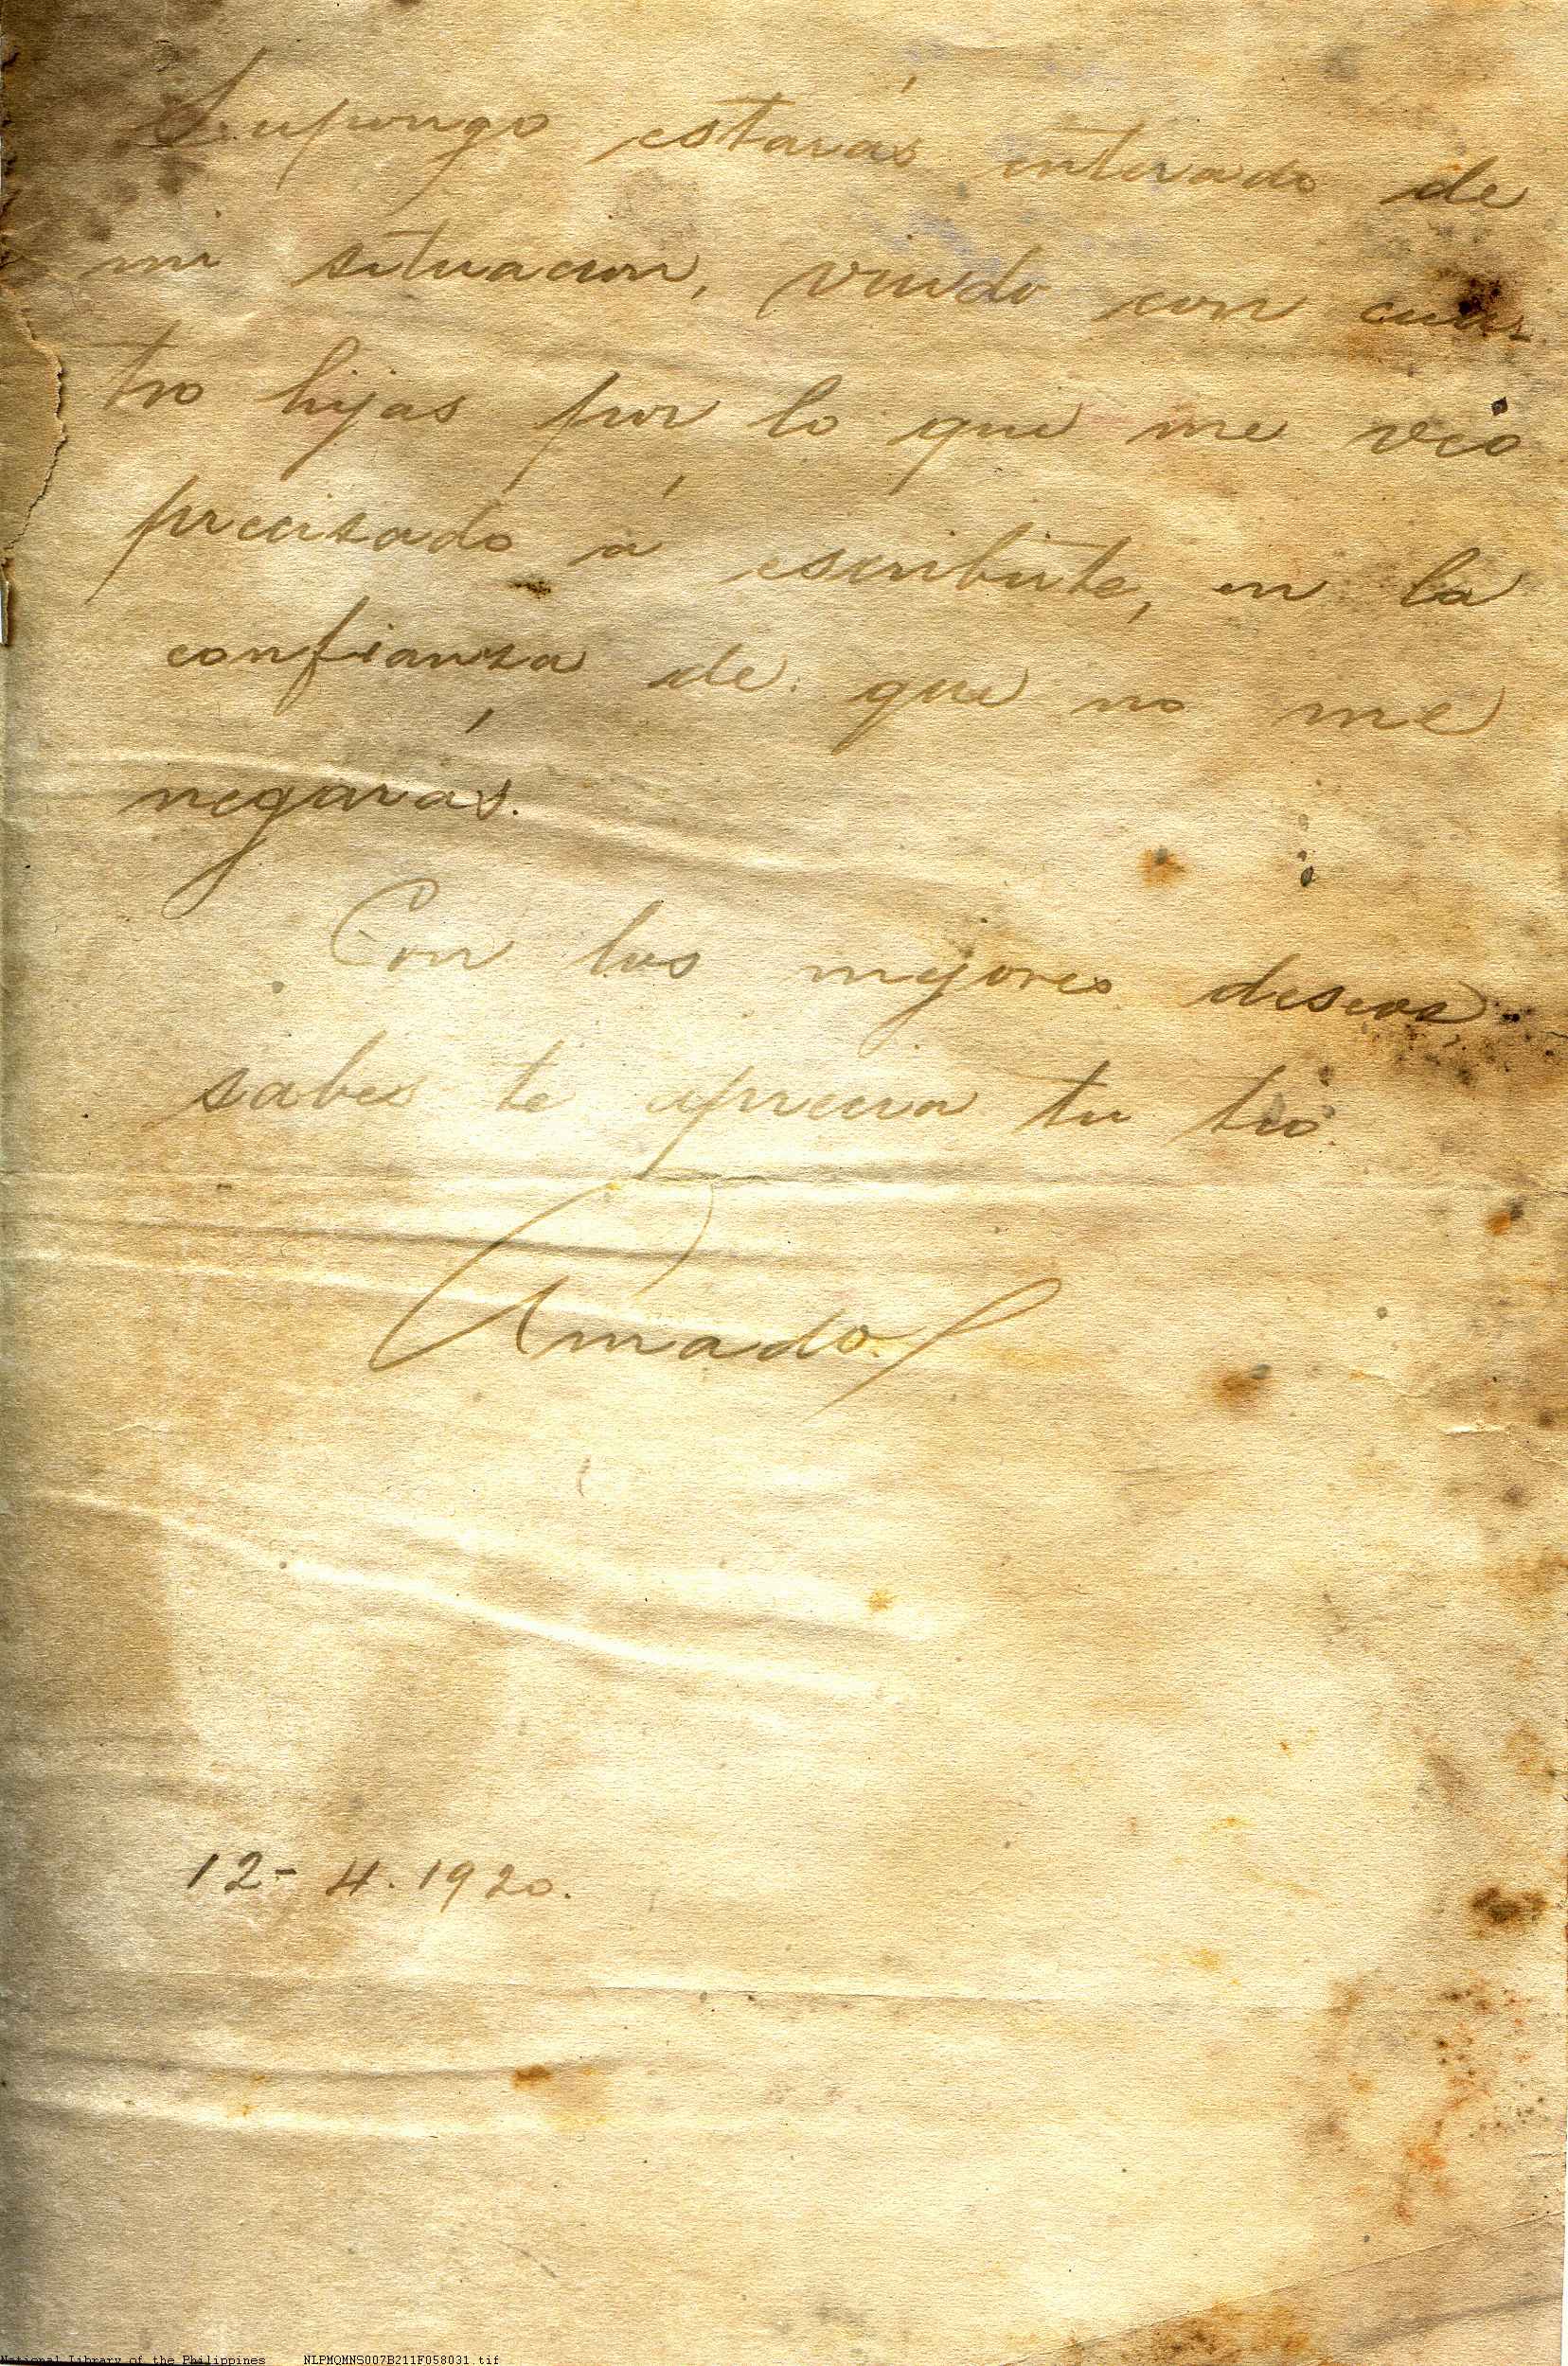 Supongo estarás enterado de
mi situacion, viudo con cua-
tro hijas por lo que me veo
precisado á escribirte, en la
confianza de que no me
negarás.
Con los mejores deseos
sabes te aprecia tu tio
Amado
12-4.1920.
National Library of the Philippines NLPMQMNS007B211F058031.tif